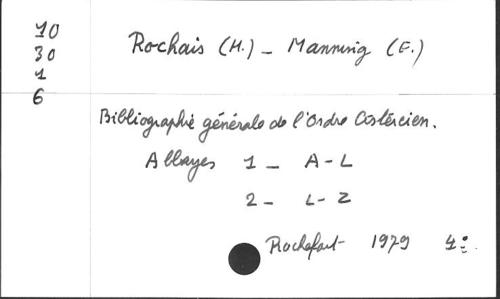 10
30
1
6
Rochais (H.) - Manning (E.)
Bibliographie générale de l'Ordre Cistercien.
Abbayes 1 - A - L
2 - L - Z
Rochefort 1979 4°.